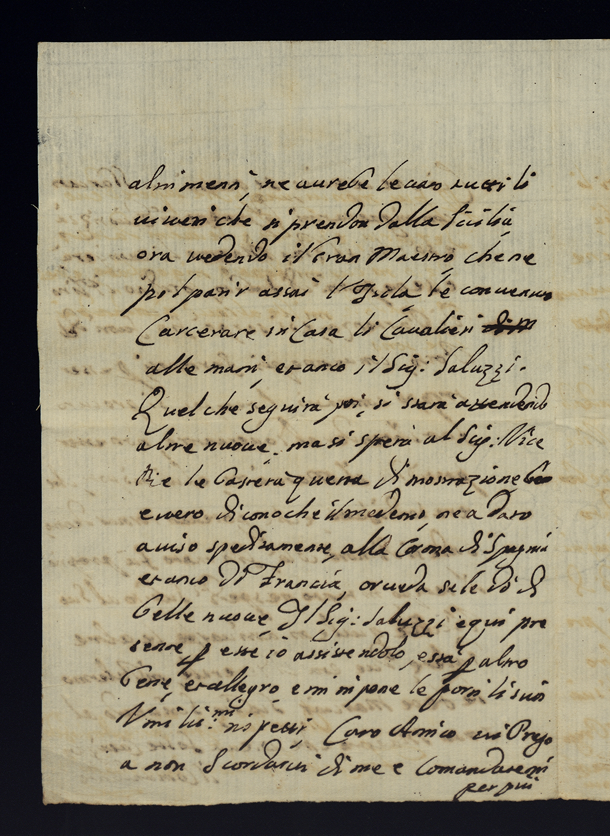 altrimenti, ne aurebe levato tutti li
viveri che si prendon dalla Sicilia
ora vedendo il Gran Maestro che ne
pol patir assai l'Isola le convenuto
Carcerare in Casa li Cavalieri
alle mani, et anco il Sig: Saluzzi.
Quel che seguirà poi, si starà attendendo
altre nuove. ma si spera al Sig: Vice
Rie le basterà questa dimostrazione
e vero dicono che il medemo ne a dato
aviso speditamente, alla Corona di Spagnia
et anco di Francia, or veda se le do di
belle nuove, Il Sig: Saluzzi e qui pre
sente, p esse io assistendolo, e sta p altro
bene, et allegro, e mi impone le porti li suoi
Umilis:mi rispetti, Caro Amico vi Prego
a non Scordarvi di me e Comandaremi
per più